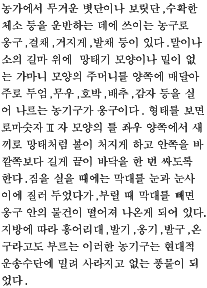 농가에서 무거운 볏단이나 보릿단,수확한
체소 등을 운반하는 데에 쓰이는 농구로
옹구,걸채,거지게,발채 등이 있다.말이나
소의 길마 위에 망태기 모양이나 밑이 없
는 가마니 모양의 주머니를 양쪽에 매달아
주로 두엄,무우,호박,배추,감자 등을 실
어 나르는 농기구가 옹구이다. 형태를 보면
로마숫자 Ⅱ자 모양의 틀 좌우 양쪽에서 새
끼로 망태처럼 볼이 처지게 하고 안쪽을 바
깥쪽보다 길게 끝이 바닥을 한 번 싸도록
한다.짐을 실을 때에는 막대를 눈과 눈사
이에 질러 두었다가,부릴 때 막대를 빼면
옹구 안의 물건이 떨어져 나온게 되어 있다.
지방에 따라 홍어리대,발기,옹기,발구,온
구라고도 부르는 이러한 농기구는 현대적
운송수단에 밀려 사라지고 없는 풍물이 되
었다.